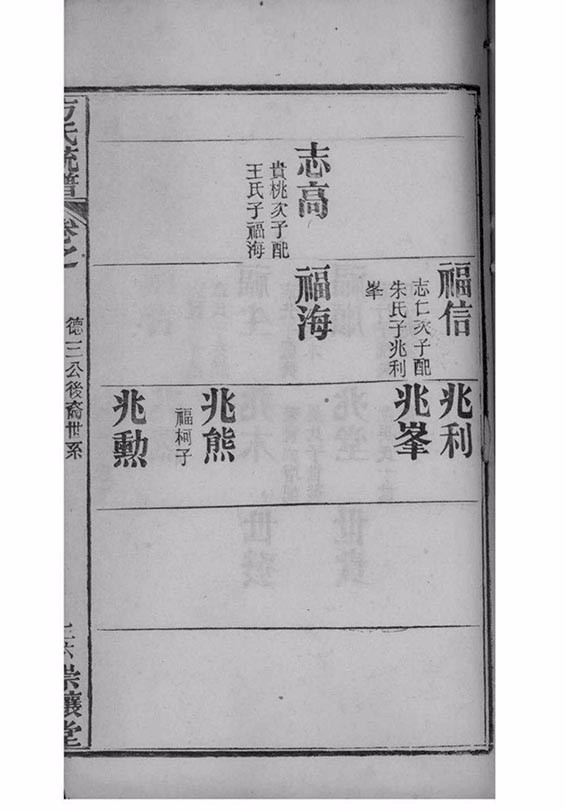 福信
志仁次子配
朱氏子兆利
峯
兆利
兆峯
志高
貴桃次子配
王氏子福海
福海
兆熊
福柯子
兆勲
方氏統譜
卷之
德三公後裔世系
崇讓堂